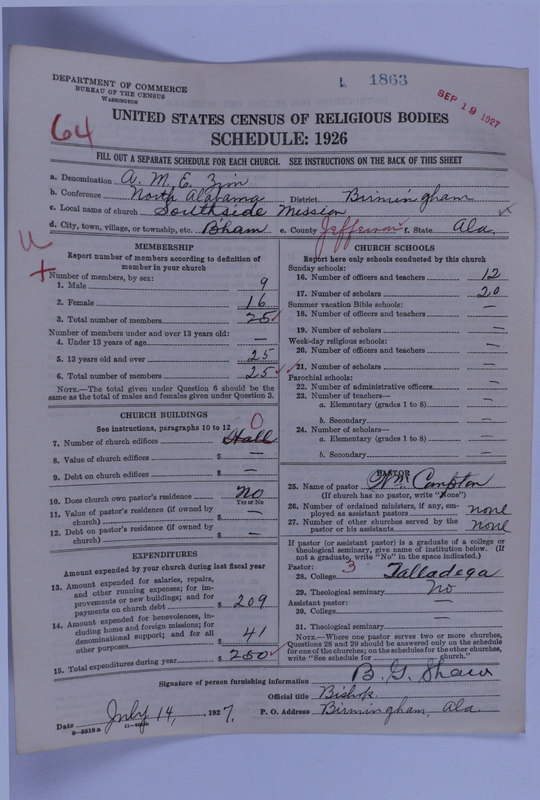 DEPARTMENT OF COMMERCE
BUREAU OF THE CENSUS
WASHINGTON
1863
SEP 19 1927
64
UNITED STATES CENSUS OF RELIGIOUS BODIES
SCHEDULE: 1926
FILL OUT A SEPARATE SCHEDULE FOR EACH CHURCH. SEE INSTRUCTIONS ON THE BACK OF THIS SHEET
a. Denomination A. M. E. Zion
b. Conference North Alabama District Birmingham
c. Local name of church Southside Mission
d. City, town, village, or township, etc. Bham e. County Jefferson f. State Ala.
MEMBERSHIP
Report number of members according to definition of member in your church
Number of members, by sex:
1. Male 9
2. Female 16
3. Total number of members 25
Number of members under and over 13 years old:
4. Under 13 years of age —
5. 13 years old and over 25
6. Total number of members 25
NOTE.—The total given under Question 6 should be the same as the total of males and females given under Question 3.
CHURCH BUILDINGS
See instructions, paragraphs 10 to 12
7. Number of church edifices Hall 0
8. Value of church edifices $ —
9. Debt on church edifices $ —
10. Does church own pastor's residence No
Yes or No
11. Value of pastor's residence (if owned by church) $ —
12. Debt on pastor's residence (if owned by church) $ —
EXPENDITURES
Amount expended by your church during last fiscal year
13. Amount expended for salaries, repairs, and other running expense; for improvements or new buildings; and for payments on church debt $ 209
14. Amount expended for benevolences, including home and foreign missions; for denominational support; and for all other purposes $ 41
15. Total expenditures during year $ 250
CHURCH SCHOOLS
Report here only schools conducted by this church
Sunday schools:
16. Number of officers and teachers 12
17. Number of scholars 20
Summer vacation Bible schools:
18. Number of officers and teachers —
19. Number of scholars —
Week-day religious schools:
20. Number of officers and teachers —
21. Number of scholars —
Parochial schools:
22. Number of administrative officers —
23. Number of teachers—
a. Elementary (grades 1 to 8) —
b. Secondary —
24. Number of scholars—
a. Elementary (grades 1 to 8) —
b. Secondary —
PASTOR
25. Name of pastor Wm. Campton
(If church has no pastor, write "None")
26. Number of ordained ministers, if any, employed as assistant pastors none
27. Number of other churches served by the pastor or his assistants none
If pastor (or assistant pastor) is a graduate of a college or theological seminary, give name of institution below. (If not a graduate, write "No" in the space indicated.)
Pastor: 3
28. College Talladega
29. Theological seminary No
Assistant pastor:
30. College —
31. Theological seminary —
NOTE.—Where one pastor serves two or more churches, Questions 28 and 29 should be answered only on the schedule for one of the churches; on the schedules for the other churches, write "See schedule for church."
Signature of person furnishing information B. G. Shaw
Official title Bishop.
Date July 14, 1927. P. O. Address Birmingham, Ala.